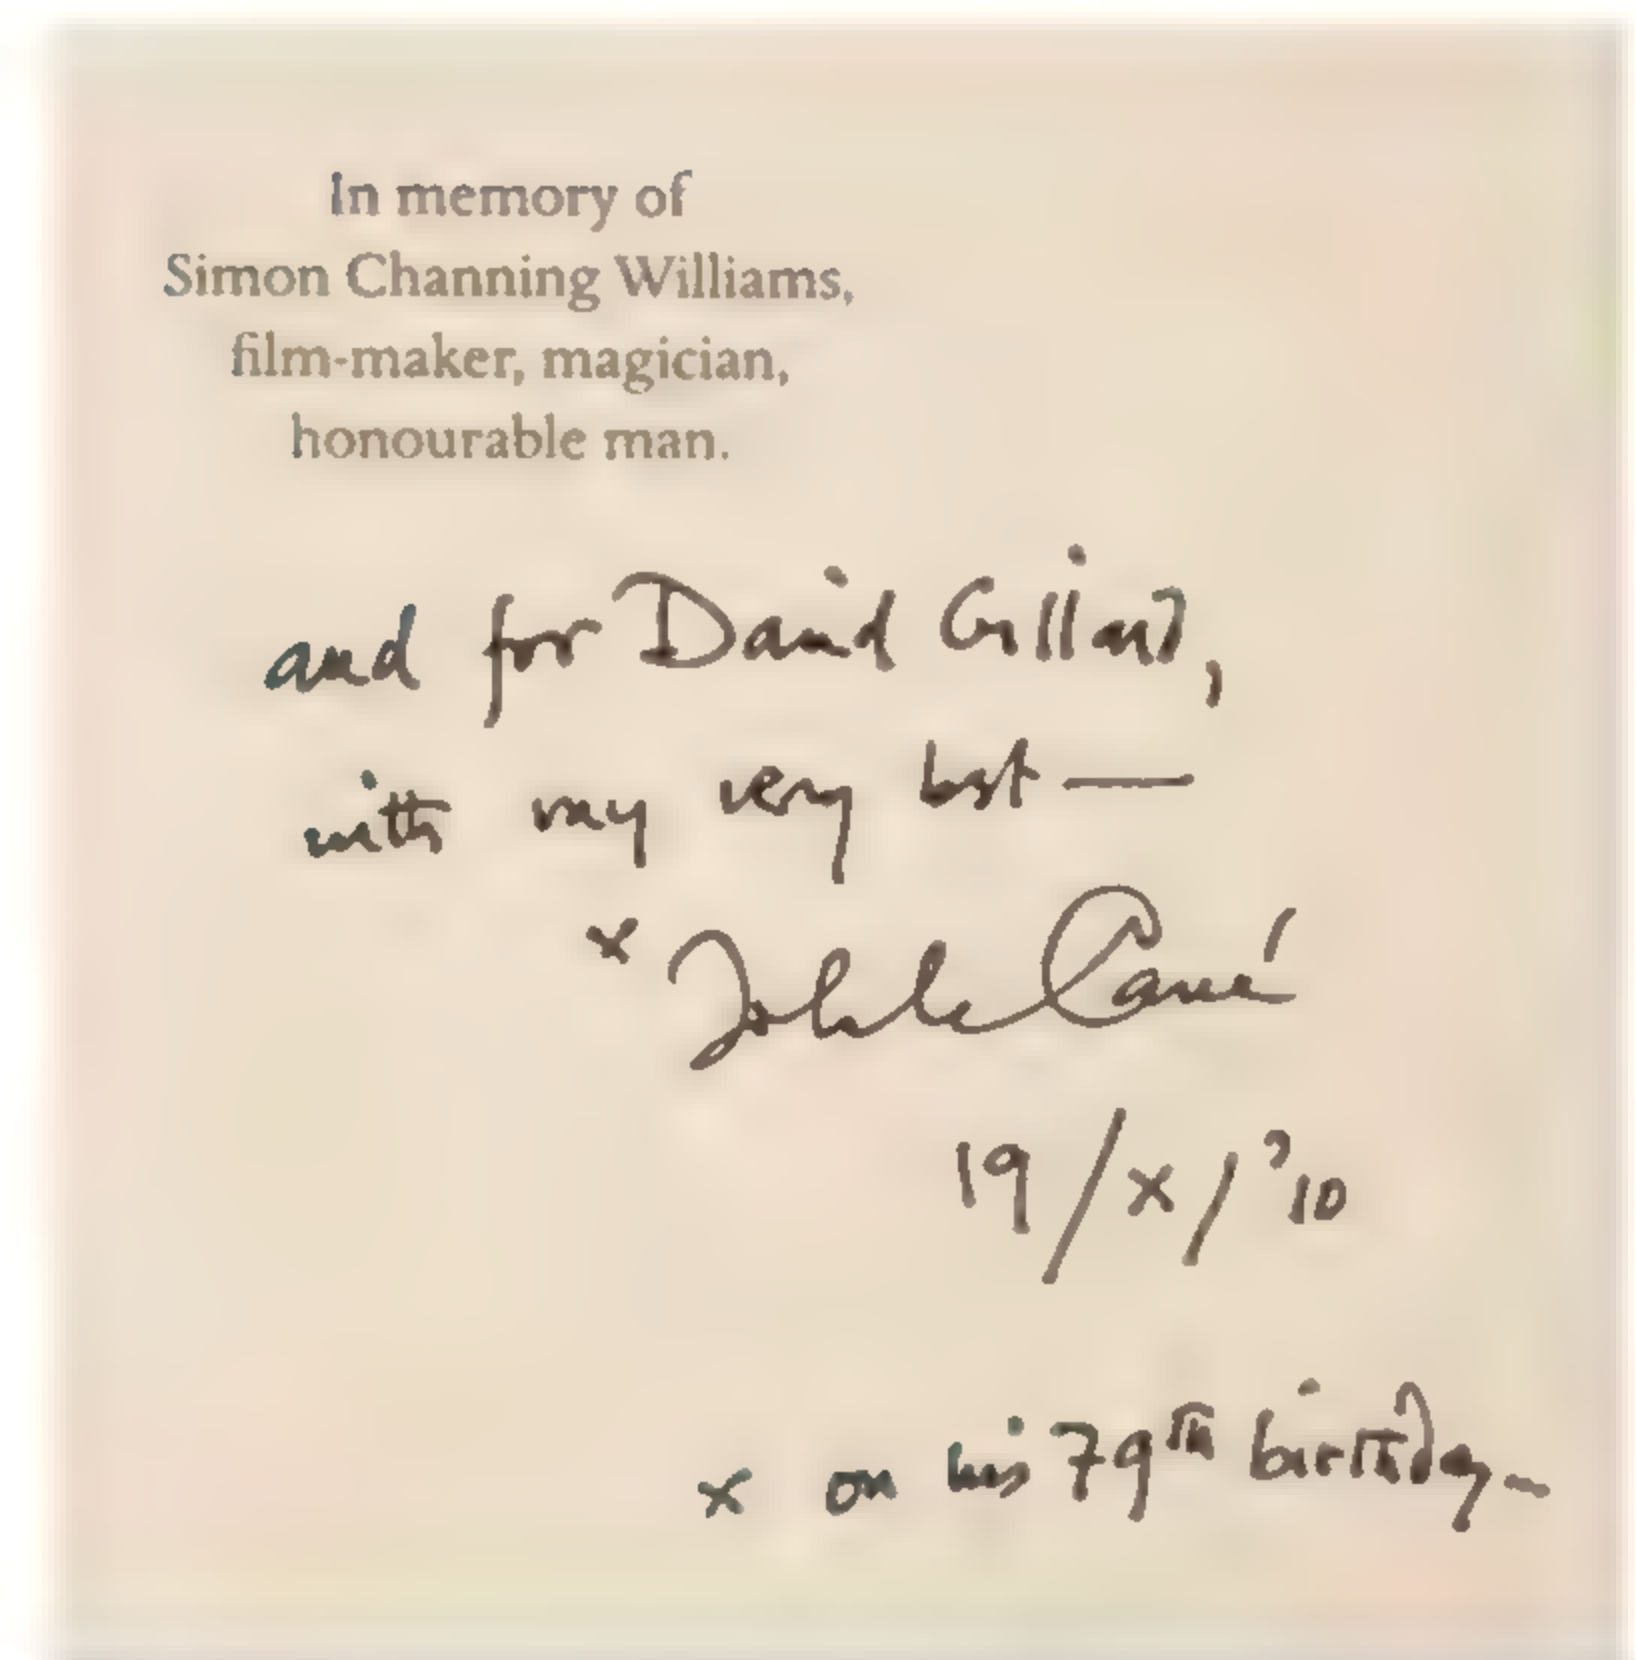 In memory of
Simon Channing Williams,
film-maker, magician,
honourable man.
and for David Gillard,
with my very best —
x John le Carré
19/x/'10
x on his 79th birthday —